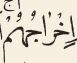 إِخْرَاجُهُمْ